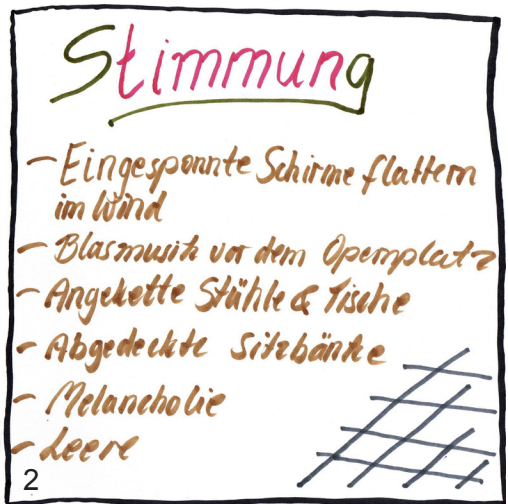 Stimmung
- Eingesponnte Schirme flattern
im Wind
- Blasmusik vor dem Opernplatz
- Angekette Stühle & Tische
- Abgedeckte Sitzbänke
- Melancholie
- Leere
2